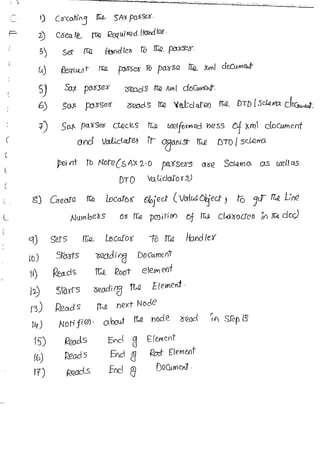 1) Creating the SAX parser.
2) Create the Required Handler.
3) Set the Handler to the parser.
4) Request the parser to parse the xml document
5) Sax parser reads the xml document.
6) Sax parser reads the validates the DTD/schema document.
7) Sax parser checks the wellformed ness of xml document
and validates it against the DTD/schema
point to Note (SAX 2.0 parsers are Schema as well as
DTD validators)
8) Create the locator object (Value Object) to get the Line
Numbers or the position of the character in the doc)
9) Sets the Locator to the Handler
10) Starts reading Document
11) Reads the Root element
12) Starts reading the Element.
13) Reads the next Node
14) Notifies about the node read in Step 13
15) Reads End of Element
16) Reads End of Root Element
17) Reads End of Document.